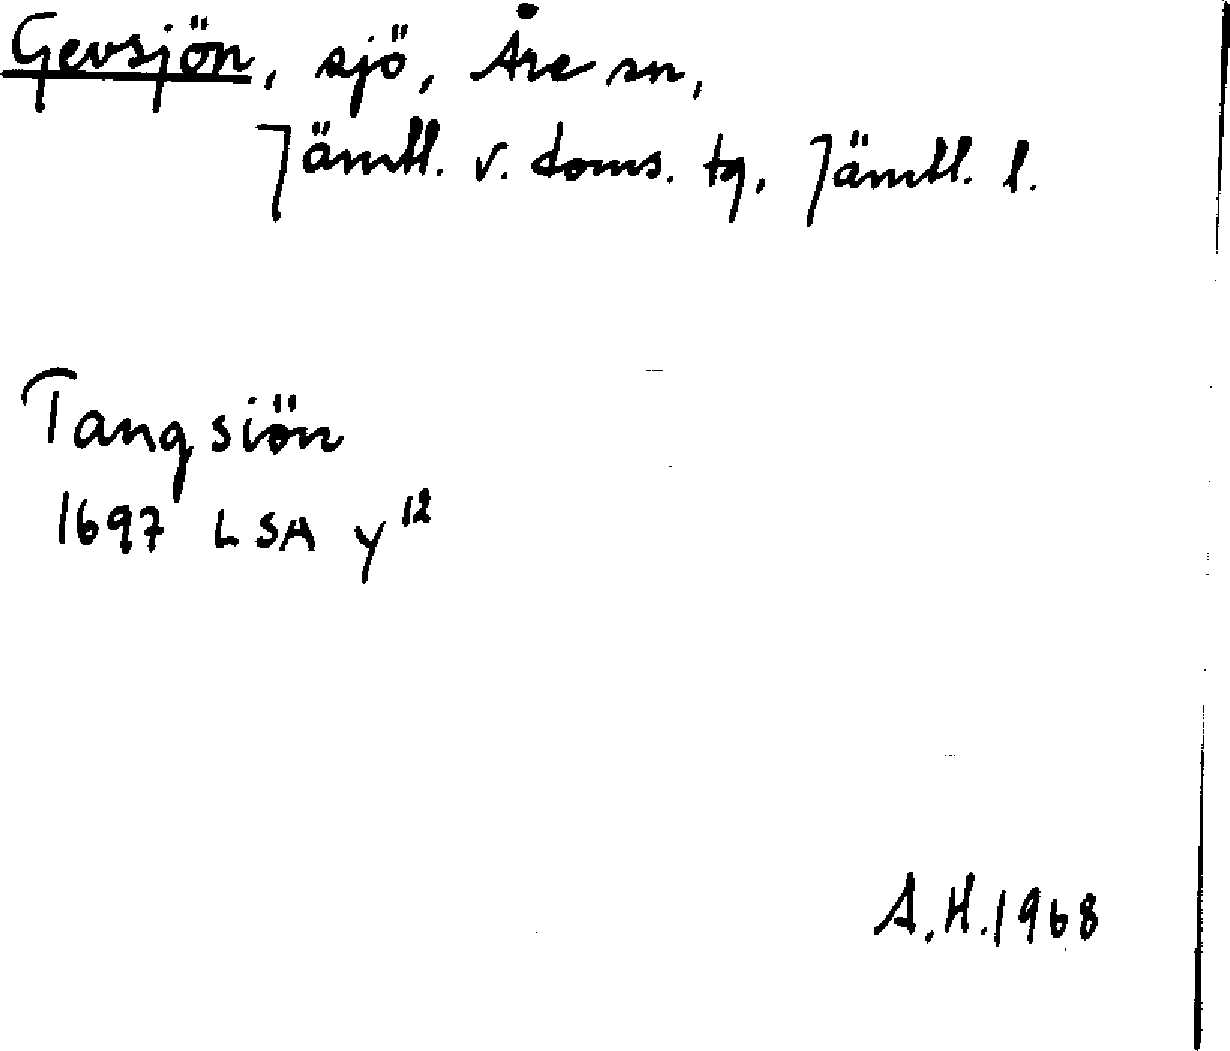 Gevsjön, sjö, Åre sn,
Jämtl. v. doms. tg, Jämtl. l.
Tangsiön
1697 LSA y¹²
A.H. 1968